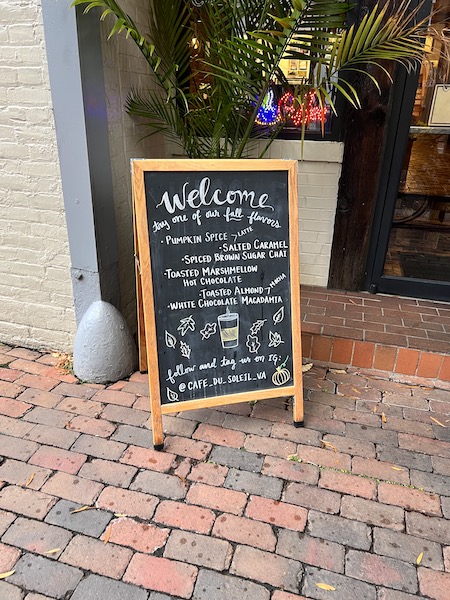 Welcome
try one of our fall flavors
· PUMPKIN SPICE LATTE
- SALTED CARAMEL
- SPICED BROWN SUGAR CHAI
- TOASTED MARSHMELLOW
HOT CHOCOLATE
- TOASTED ALMOND MOCHA
- WHITE CHOCOLATE MACADAMIA
follow and tag us on IG:
@CAFE_DU_SOLEJL_VA